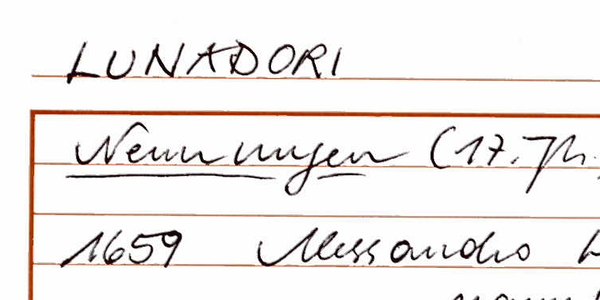 LUNADORI
Nennungen (17. Jh.
1659 Alessandro